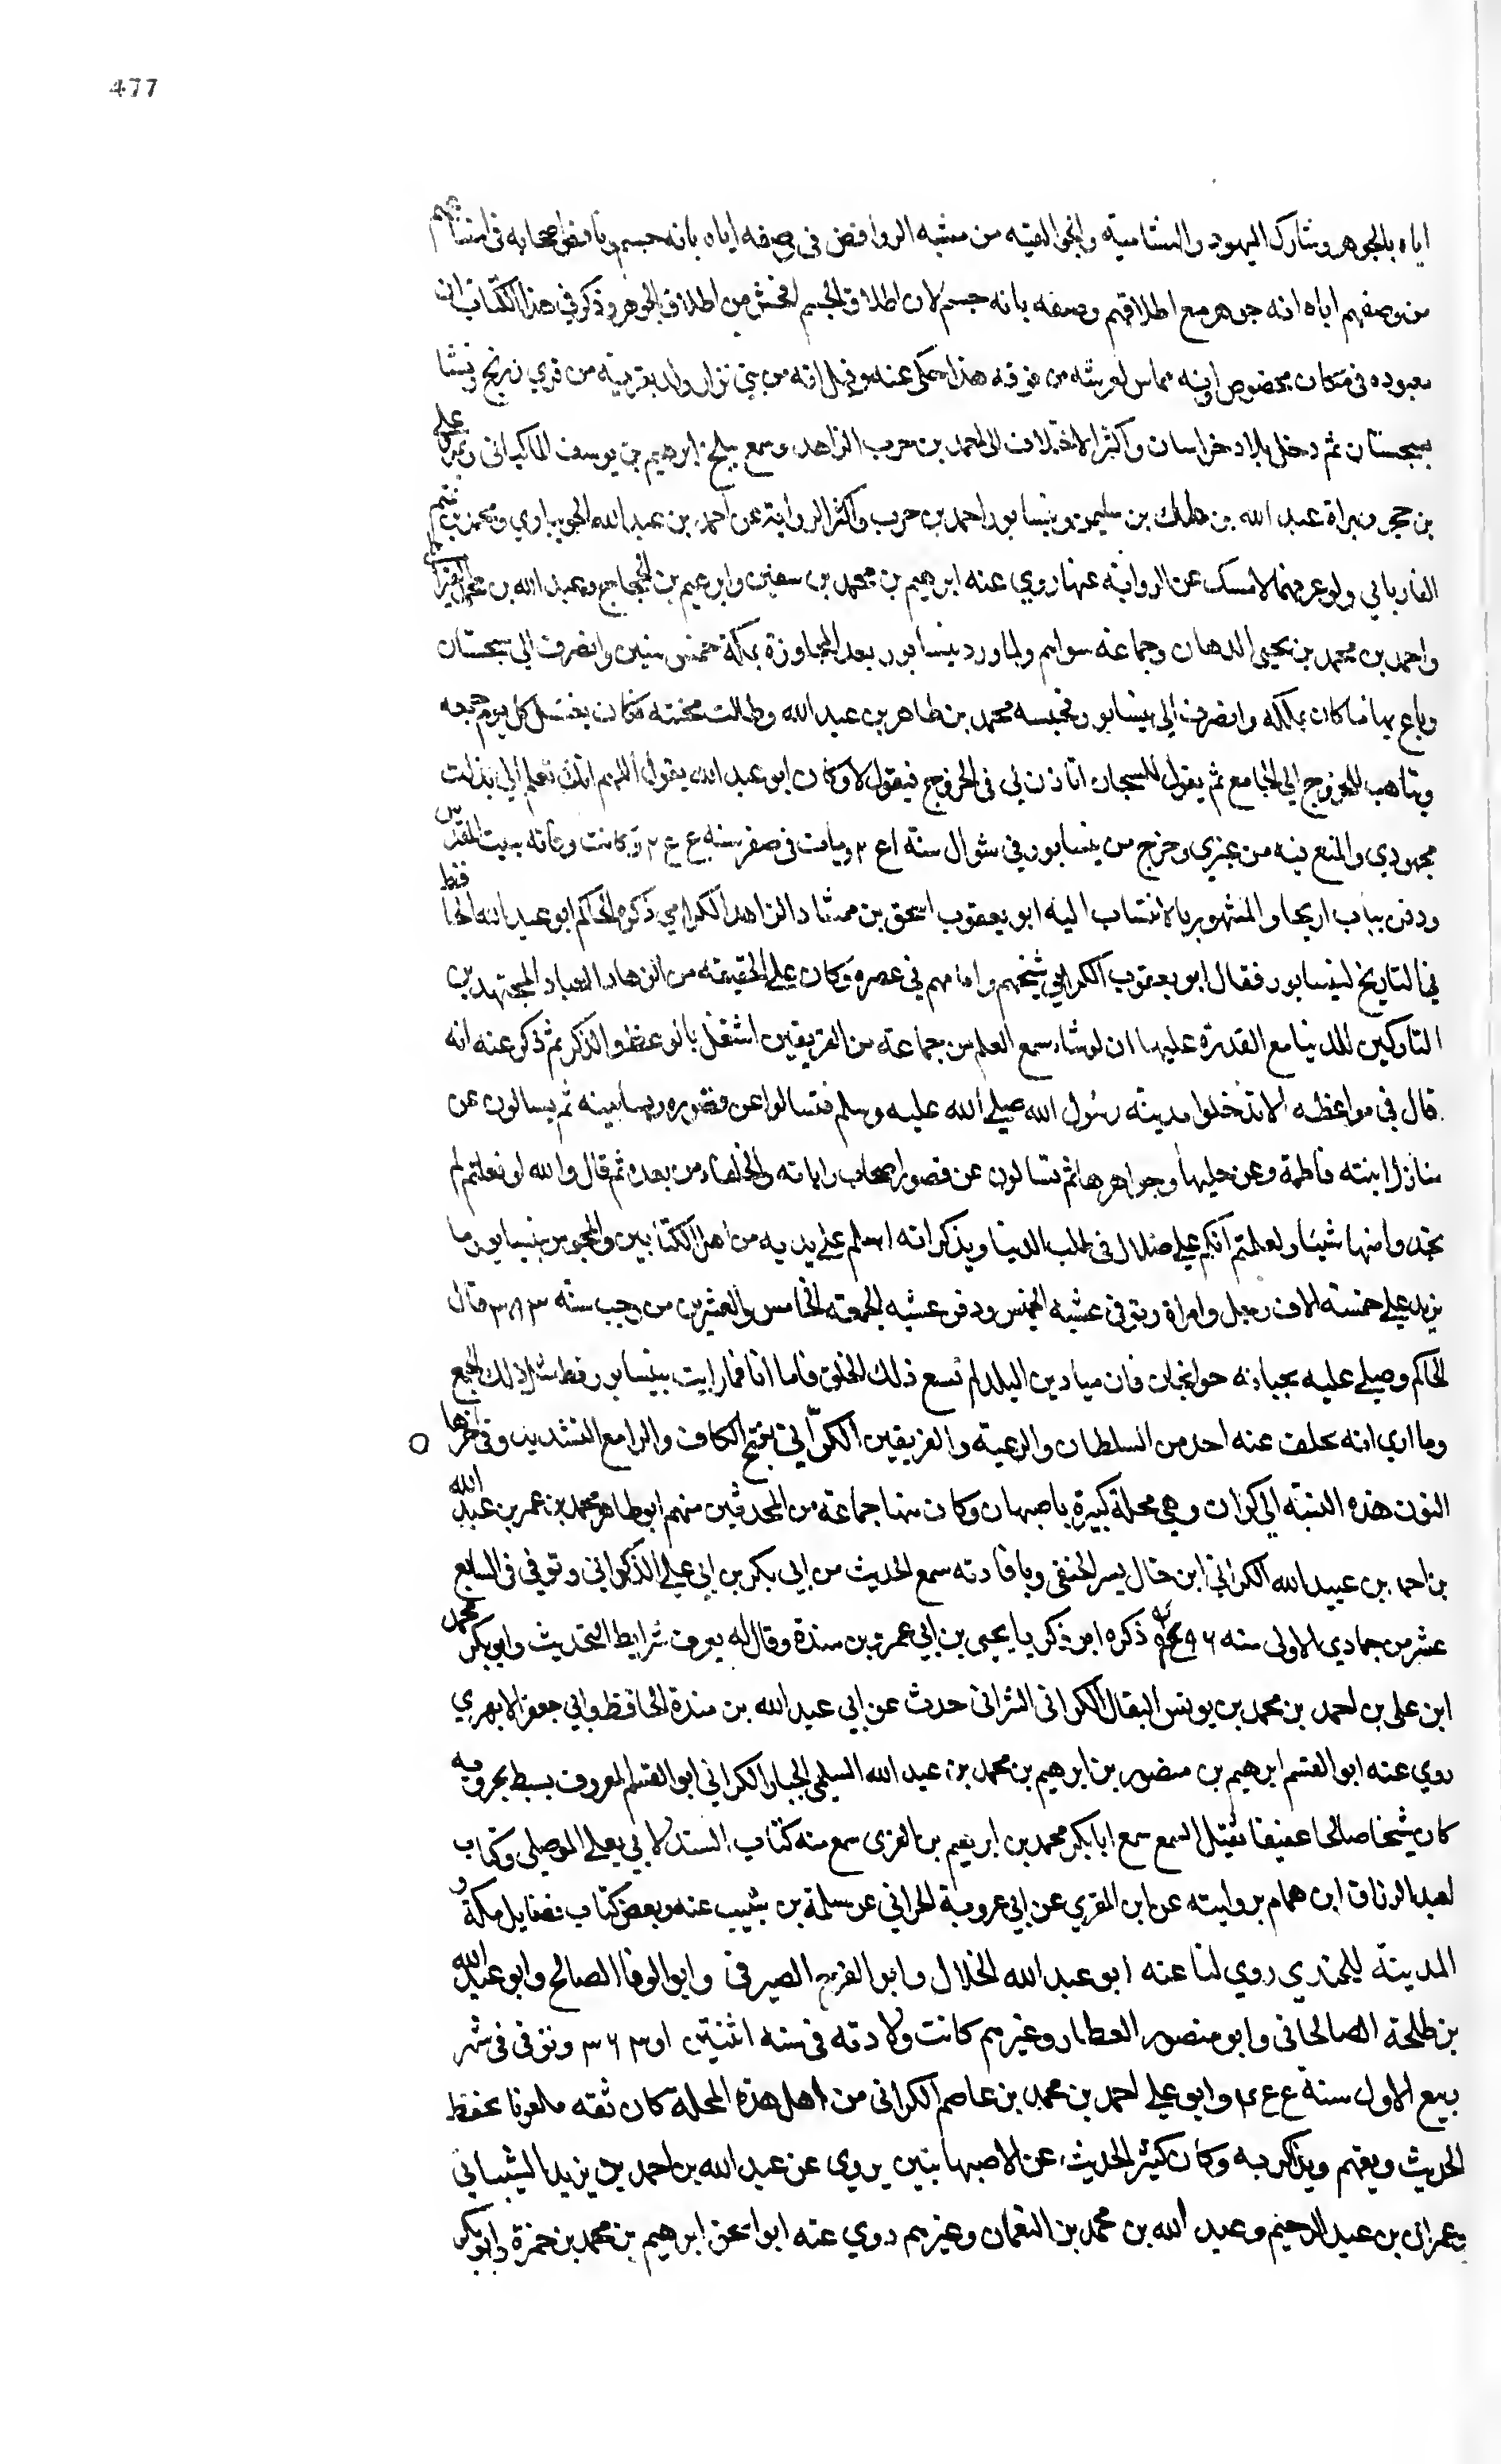 477
اياه بالجوهر وشارك اليهود والهشامية والجواليقيه من مشبه الروافض في وصفه اياه بانه جسم وناقض اصحابه في امتناعهم
من وصفهم اياه انه جوهر مع اطلاقهم وصفه بانه جسم لان اطلاق الجسم افحش من اطلاق الجوهر وذكر في هذا الكتاب ان
معبوده في مكان مخصوص وانه مماس لعرشه من فوقه هذا حكى عنه وقيل انه من بني نزار ولد بقرية من قري زرنج ونشا
بسجستان ثم دخل بلاد خراسان واكثر الاختلاف الى احمد بن حرب الزاهد وسمع ببلخ ابرهيم بن يوسف الماكياني وبمرو علي
بن حجر وبهراة عبد الله بن مالك بن سليمن وبنيسابور احمد بن حرب واكثر الرواية عن احمد بن عبد الله الجويباري ومحمد بن تميم
الفاريابي ولو عرفهما لامسك عن الرواية عنهما روي عنه ابرهيم بن محمد بن سفين وابرهيم بن الحجاج وعبد الله بن محمد القيراطي
واحمد بن محمد بن يحيى الدهان وجماعة سواهم ولما ورد نيسابور بعد المجاورة بمكة خمس سنين وانصرف الى سجستان
وباع بها ما كان يملكه وانصرف الي نيسابور فحبسه محمد بن طاهر بن عبد الله وطالت محنته فكان يغتسل كل يوم جمعه
ويتاهب للخروج الي الجامع ثم يقول للسجان اتاذن لي في الخروج فيقول لا وكان ابو عبد الله يقول اللهم انك تعلم اني بذلت
مجهودي والمنع فيه من غيري وخرج من نيسابور في شوال سنة ٢٤١ ومات في صفر سنه ٢٤٤ وكانت وفاته ببيت المقدس
ودفن بباب اريحا والمشهور بالانتساب اليه ابو يعقوب اسحق بن ممشاد الزاهد الكرامي ذكره الحاكم ابو عبد الله الحافظ
في التاريخ لنيسابور فقال ابو يعقوب الكرامي شيخهم وامامهم في عصره وكان علي الحقيقه من الزهاد العباد المجتهدين
التاركين للدنيا مع القدرة عليها ان لو شاء سمع العلم من جماعة من الفريقين اشتغل بالوعظ والذكر ثم ذكر عنه انه
قال في مواعظه الا تدخلوا مدينة رسول الله صلي الله عليه وسلم فتسالوا عن قصوره وبساتينه ثم يسالون عن
منازل ابنته فاطمة وعن حليها وجواهرها ثم تسالون عن قصور اصحاب راياته والخلفاء من بعده ثم قال والله لو فعلتم لم
تجدوا منها شيئا ولعلمتم انكم علي ضلال في طلب الدنيا ويذكر انه اسلم علي يديه من اهل الكتابين والمجوس بنيسابور ما
يزيد علي خمسة الاف رجل وامراة وتوفي عشية الخميس ودفن عشيه الجمعة الخامس والعشرين من رجب سنة ٣٨٣ قال
الحاكم وصلي عليه بجبانه حوانجان فان ميادين البلد لم تسع ذلك الخلق فاما انا فما رايت بنيسابور قط مثل ذلك الجمع
وما اري انه تخلف عنه احد من السلطان والرعية والفريقين الكرّاني بفتح الكاف والرا مع التشديد وفي اخرها
النون هذه النسبة الى كران وهي محلة كبيرة باصبهان وكان منها جماعة من المحدثين منهم ابو طاهر محمد بن عمر بن عبد الله
بن احمد بن عبيد الله الكراني ابن خال يسر الحنفي وبافادته سمع الحديث من ابي بكر بن ابي علي الذكواني وتوفي في السابع
عشر من جمادي الاولى سنه ٤٩٦ ذكره ابو زكريا يحيى بن ابي عمرو بن مندة وقال له يعرف شرايط التحديث وابو بكر محمد
ابن علي بن احمد بن محمد بن يونس البقال الكراني الشرابي حدث عن ابي عبد الله بن مندة الحافظ وابي جعفر الابهري
روي عنه ابو القسم ابرهيم بن منصور بن ابرهيم بن محمد بن عبد الله السلمي الجباز الكراني ابو القسم المعروف بسبط بحرويه
كان شيخا صالحا عفيفا ثقيل السمع سمع ابا بكر محمد بن ابرهيم بن المقرى سمع منه كتاب المسند لابي يعلي الموصلي وكتاب
لعبد الرزاق ابن همام بروايته عن ابن المقري عن ابي عروبة الحراني عن سلمة بن شبيب عنه وبعض كتاب فضايل مكة و
المدينة للجندي روي لنا عنه ابو عبد الله الخلال وابو الفرج الصيرفي وابو الوفا الصالح وابو عبد الله
بن طلحة الصالحاني وابو منصور العطار وغيرهم كانت ولادته في سنه اثنتين او ٣٦٣ وتوفي في شهر
ربيع الاول سنة ٤٤ وابو علي احمد بن محمد بن عاصم الكراني من اهل هذه المحلة كان ثقه مامونا يحفظ
الحديث ويفهم ويذاكر به وكان كثير الحديث عن الاصبهانيين يروي عن عبد الله بن احمد بن يزيد الشيباني
وعمران بن عبد الرحيم وعبد الله بن محمد بن النعمان وغيرهم روي عنه ابو اسحق ابرهيم بن محمد بن حمزة وابو بكر